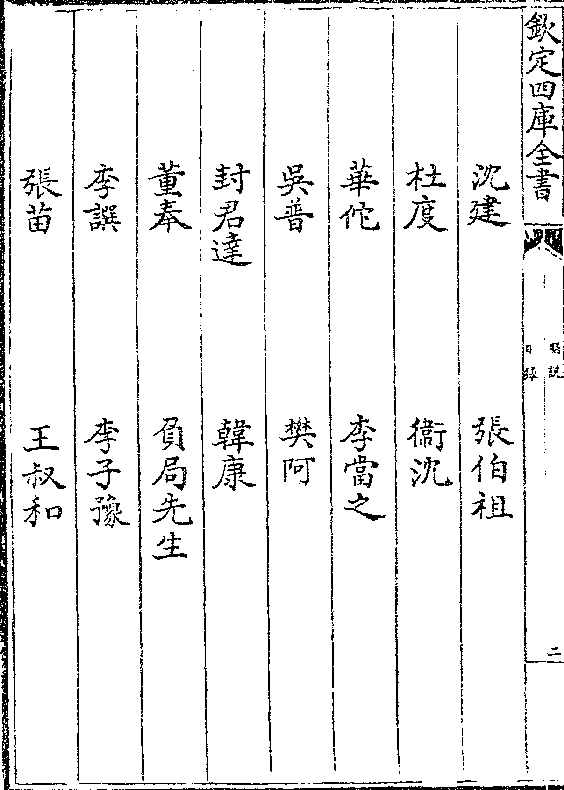 欽定四庫全書
醫說
目録
二
沈建 張伯祖
杜度 衞沈
華佗 李當之
吳普 樊阿
封君達 韓康
董奉 負局先生
李譔 李子豫
張苗 王叔和